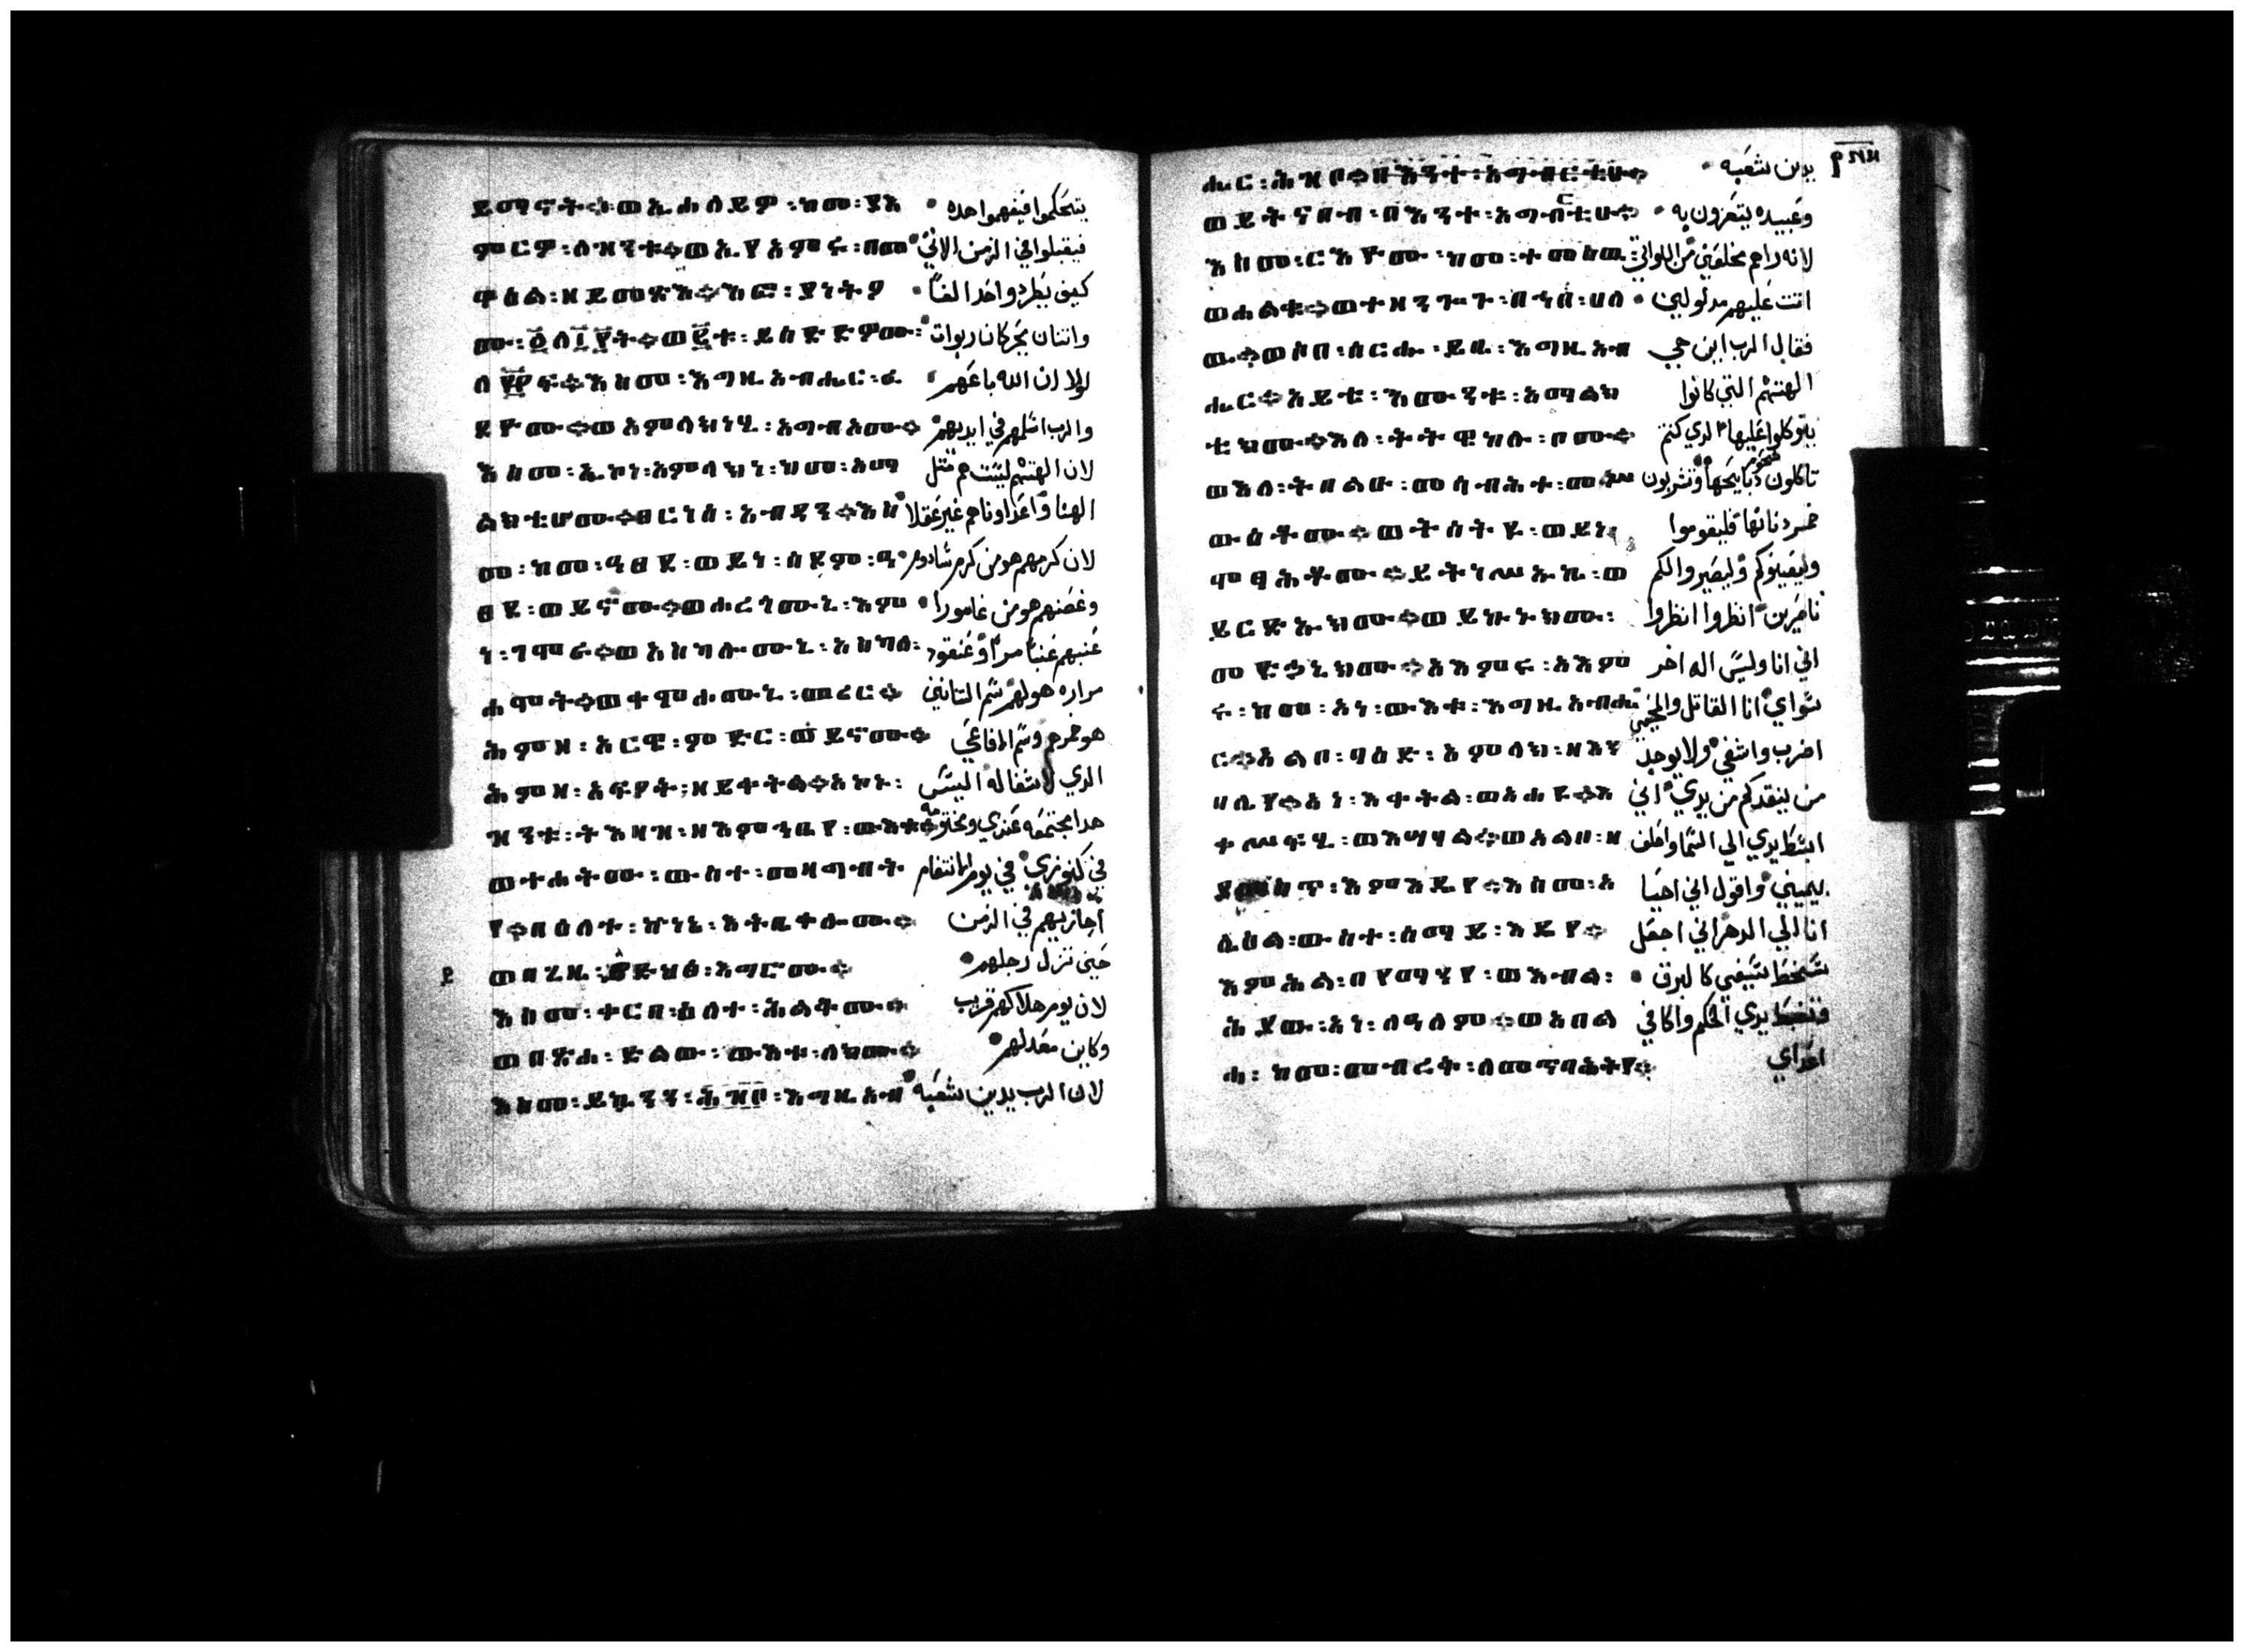 ይጣኖት።ወኢሐለይዎ፡ከመ፡ያእ يتحكموا فيفهموا هده
ምርዎ፡ለዝንቱ።ወኢያአምሩ፡በመ فيقبلوا في الزمن الاتي
ዋዕል፡ዘይመጽእ።እፎ፡ያነትዖ كيف يطردوا احد الفًا
ሙ፡፩ለ፲፻ት።ወ፪ቱ፡ይሰድድዎሙ፡ واتنان يحركان ربوات
ለ፻፻ፍ።እስመ፡እግዚአብሔር፡ፈ لولا ان الله باعهم
ደዮሙ።ወአምላክነሂ፡አግብአሙ። والرب اسلمهم في ايديهم
እስመ፡ኢኮነ፡አምላክነ፡ከመ፡አማ لان الهتهم ليست هم متل
ልክቲሆሙ።ፀርነሰ፡አብዳን።እስ الهنا واعداونا هم غير عقلا
መ፡ከመ፡ዓፀደ፡ወይነ፡ሰዶም፡ዓ لان كرمهم هو من كرم سادوم
ፀደ፡ወይኖሙ።ወሐረገሙኒ፡እም وغصنهم هو من غامورا
ነ፡ገሞራ።ወአስካሎሙኒ፡አስካለ፡ عنبهم عنبًا مرا وعنقود
ሐሞት።ወቀምሐሙኒ፡መሪር። مراره هو لهم سم التانين
ሕምዘ፡አርዌ፡ምድር፡ወይኖሙ። هو خمرهم وسم الافاعي
ሕምዘ፡አፍዖት፡ዘይቀትል።አኮኑ፡ الدي لا شفا له اليس
ዝንቱ፡ትእዛዝ፡ዘእምኀቤየ፡ውእቱ። هدا مجتمعه عندي ومختومه
ወተሐትሙ፡ውስተ፡መዝግብት في كنوزي في يوم الانتقام
የ።በዕለተ፡ኵነኔ፡እትቤቀሎሙ። اجازيهم في الزمن
ወበጊዜ፡ይድኅፅ፡እግሮሙ። حين تزل رجلهم
እስመ፡ቀርበ፡ዕለተ፡ሕልቆሙ። لان يوم هلاكهم قريب
ወበጽሐ፡ድልው፡ውእቱ፡ለክሙ። وكاين معد لهم
እስመ፡ይኴንን፡ሕዝቦ፡እግዚአብ لان الرب يدين شعبه
ሔር፡ሕዝቦ።በእንተ፡አግብርቲሁ። يدين شعبه
ወይትናበብ፡በእንተ፡አግብርቲሁ። وعبيده يتعزون به
እስመ፡ርእዮሙ፡ከመ፡ተመስዉ لانه راهم مخلعين من اللواتي
ወሐልቁ።ወተዝንጉጉ፡በኀበ፡ሀለ اتت عليهم مدلولين
ዉ።ወሶበ፡ሰርሐ፡ይቤ፡እግዚአብ فقال الرب اين هي
ሔር።አይቴ፡እሙንቱ፡አማልክ الهتهم التي كانوا
ቲክሙ።እለ፡ትትዌከሉ፡ቦሙ። يتوكلوا عليها الدي كنتم
ወእለ፡ትበልዑ፡መሳብሕተ፡መሥ تاكلون شحوم دبايحها وتشربون
ውዕቶሙ።ወትሰትዩ፡ወይነ፡ خمر فليقوموا
ሞፃሕቶሙ።ይትነሥኡኬ፡ወ وليعينوكم وليصيروا لكم
ይርድኡክሙ።ወይኩኑክሙ፡ ناصرين انظروا انظروا
መድኃኒክሙ።አእምሩ፡አእም اني انا وليس اله اخر
ሩ፡ከመ፡አነ፡ውእቱ፡እግዚአብሔ سواي انا القاتل والمحيي
ር።አልቦ፡ባዕድ፡አምላክ፡ዘእን اضرب واشفي ولا يوجد
በሌየ።አነ፡እቀትል፡ወአሐዩ።እ من ينقدكم من يدي اني
ቀሥፍሂ፡ወእሣሃል።ወአልቦ፡ዘ ابسط يدي الي السما واحلف
ያመስጥ፡እምእዴየ።እስመ፡እ بيميني واقول اني احيا
ሌዕል፡ውስተ፡ሰማይ፡እዴየ። انا الي الدهر اني اجعل
እምሕል፡በየማንየ፡ወእብል፡ سيفي كالبرق
ሕያው፡አነ፡ለዓለም።ወአበል فتضبط يدي الحكم واكافي
ሕ፡ከመ፡መብረቅ፡ለመጥባሕትየ። اعداي